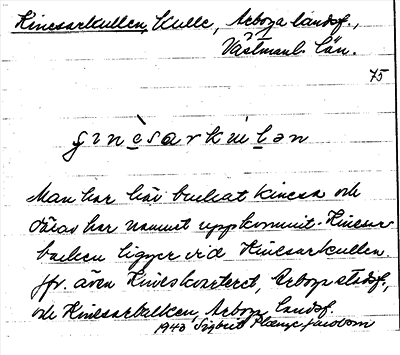 Kinesarkullen, kulle, Arboga landsf.,
Västmanl. län.
75
ɟinèsarkulən
Man har här brukat kinesa och
därav har namnet uppkommit. Kinesar-
backen ligger vid Kinesarkullen.
Jfr. även Kineskvarteret, Arboga stadsf.,
och Kinesarbacken, Arboga landsf.
1943